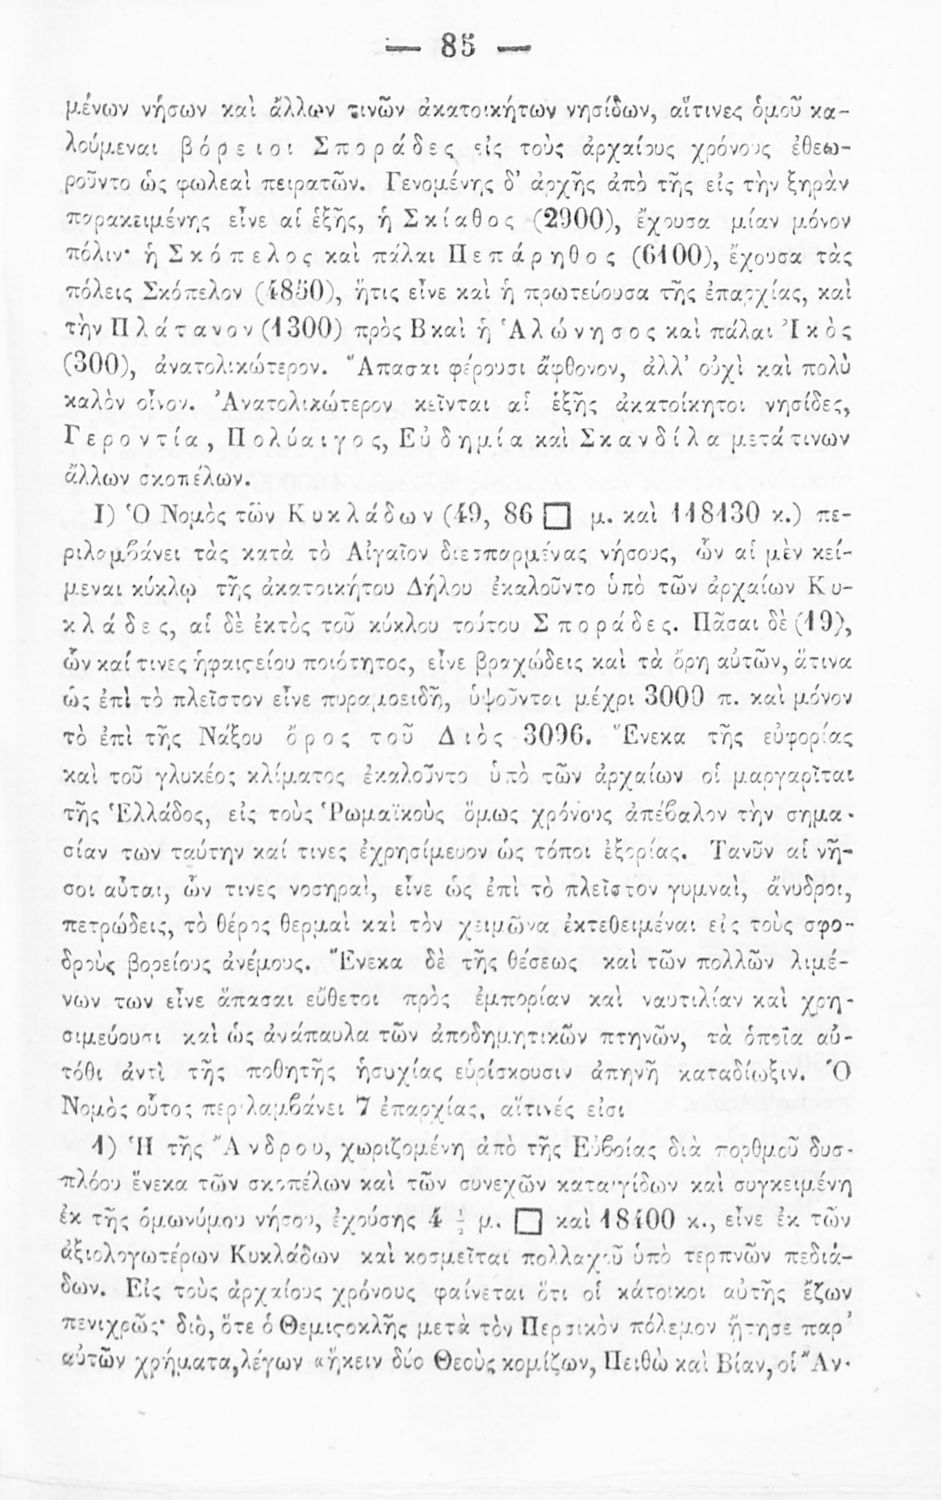 — 85 —
μένων νήσων καὶ ἄλλων τινῶν ἀκατοικήτων νησίδων, αἵτινες ὁμοῦ κα-
λούμεναι βόρειοι Σποράδες εἰς τοὺς ἀρχαίους χρόνους ἐθεω-
ροῦντο ὡς φωλεαὶ πειρατῶν. Γενομένης δ’ ἀρχῆς ἀπὸ τῆς εἰς τὴν ξηρὰν
παρακειμένης εἶνε αἱ ἑξῆς, ἡ Σκίαθος (2900), ἔχουσα μίαν μόνον
πόλιν· ἡ Σκόπελος καὶ πάλαι Πεπάρηθος (6100), ἔχουσα τὰς
πόλεις Σκόπελον (4850), ἥτις εἶνε καὶ ἡ πρωτεύουσα τῆς ἐπαρχίας, καὶ
τὴν Πλάτανον (1300) πρὸς Β καὶ ἡ Ἁλώνησος καὶ πάλαι Ἰκὸς
(300), ἀνατολικώτερον. Ἅπασαι φέρουσι ἄφθονον, ἀλλ’ οὐχὶ καὶ πολὺ
καλὸν οἶνον. Ἀνατολικώτερον κεῖνται αἱ ἑξῆς ἀκατοίκητοι νησίδες,
Γεροντία, Πολύαιγος, Εὐδημία καὶ Σκανδίλα μετά τινων
ἄλλων σκοπέλων.
Ι) Ὁ Νομὸς τῶν Κυκλάδων (49, 86 □ μ. καὶ 118130 κ.) πε-
ριλαμβάνει τὰς κατὰ τὸ Αἰγαῖον διεσπαρμένας νήσους, ὧν αἱ μὲν κεί-
μεναι κύκλῳ τῆς ἀκατοικήτου Δήλου ἐκαλοῦντο ὑπὸ τῶν ἀρχαίων Κυ-
κλάδες, αἱ δὲ ἐκτὸς τοῦ κύκλου τούτου Σποράδες. Πᾶσαι δὲ (19),
ὧν καί τινες ἡφαιστείου ποιότητος, εἶνε βραχώδεις καὶ τὰ ὄρη αὐτῶν, ἅτινα
ὡς ἐπὶ τὸ πλεῖστον εἶνε πυραμοειδῆ, ὑψοῦνται μέχρι 3000 π. καὶ μόνον
τὸ ἐπὶ τῆς Νάξου ὄρος τοῦ Διὸς 3096. Ἕνεκα τῆς εὐφορίας
καὶ τοῦ γλυκέος κλίματος ἐκαλοῦντο ὑπὸ τῶν ἀρχαίων οἱ μαργαρῖται
τῆς Ἑλλάδος, εἰς τοὺς Ῥωμαϊκοὺς ὅμως χρόνους ἀπέβαλον τὴν σημα-
σίαν των ταύτην καί τινες ἐχρησίμευον ὡς τόποι ἐξορίας. Τανῦν αἱ νῆ-
σοι αὗται, ὧν τινες νοσηραί, εἶνε ὡς ἐπὶ τὸ πλεῖστον γυμναί, ἄνυδροι,
πετρώδεις, τὸ θέρος θερμαὶ καὶ τὸν χειμῶνα ἐκτεθειμέναι εἰς τοὺς σφο-
δροὺς βορείους ἀνέμους. Ἕνεκα δὲ τῆς θέσεως καὶ τῶν πολλῶν λιμέ-
νων των εἶνε ἅπασαι εὔθετοι πρὸς ἐμπορίαν καὶ ναυτιλίαν καὶ χρη-
σιμεύουσι καὶ ὡς ἀνάπαυλα τῶν ἀποδημητικῶν πτηνῶν, τὰ ὁποῖα αὐ-
τόθι ἀντὶ τῆς ποθητῆς ἡσυχίας εὑρίσκουσιν ἀπηνῆ καταδίωξιν. Ὁ
Νομὸς οὗτος περιλαμβάνει 7 ἐπαρχίας, αἵτινές εἰσι
1) Ἡ τῆς Ἄνδρου, χωριζομένη ἀπὸ τῆς Εὐβοίας διὰ πορθμοῦ δυσ-
πλόου ἕνεκα τῶν σκοπέλων καὶ τῶν συνεχῶν καταιγίδων καὶ συγκειμένη
ἐκ τῆς ὁμωνύμου νήσου, ἐχούσης 4 μ. □ καὶ 18400 κ., εἶνε ἐκ τῶν
ἀξιολογωτέρων Κυκλάδων καὶ κοσμεῖται πολλαχοῦ ὑπὸ τερπνῶν πεδιά-
δων. Εἰς τοὺς ἀρχαίους χρόνους φαίνεται ὅτι οἱ κάτοικοι αὐτῆς ἔζων
πενιχρῶς· διὸ, ὅτε ὁ Θεμιστοκλῆς μετὰ τὸν Περσικὸν πόλεμον ᾔτησε παρ’
αὐτῶν χρήματα, λέγων «ἥκειν δύο Θεοὺς κομίζων, Πειθὼ καὶ Βίαν, οἱ Ἄν-